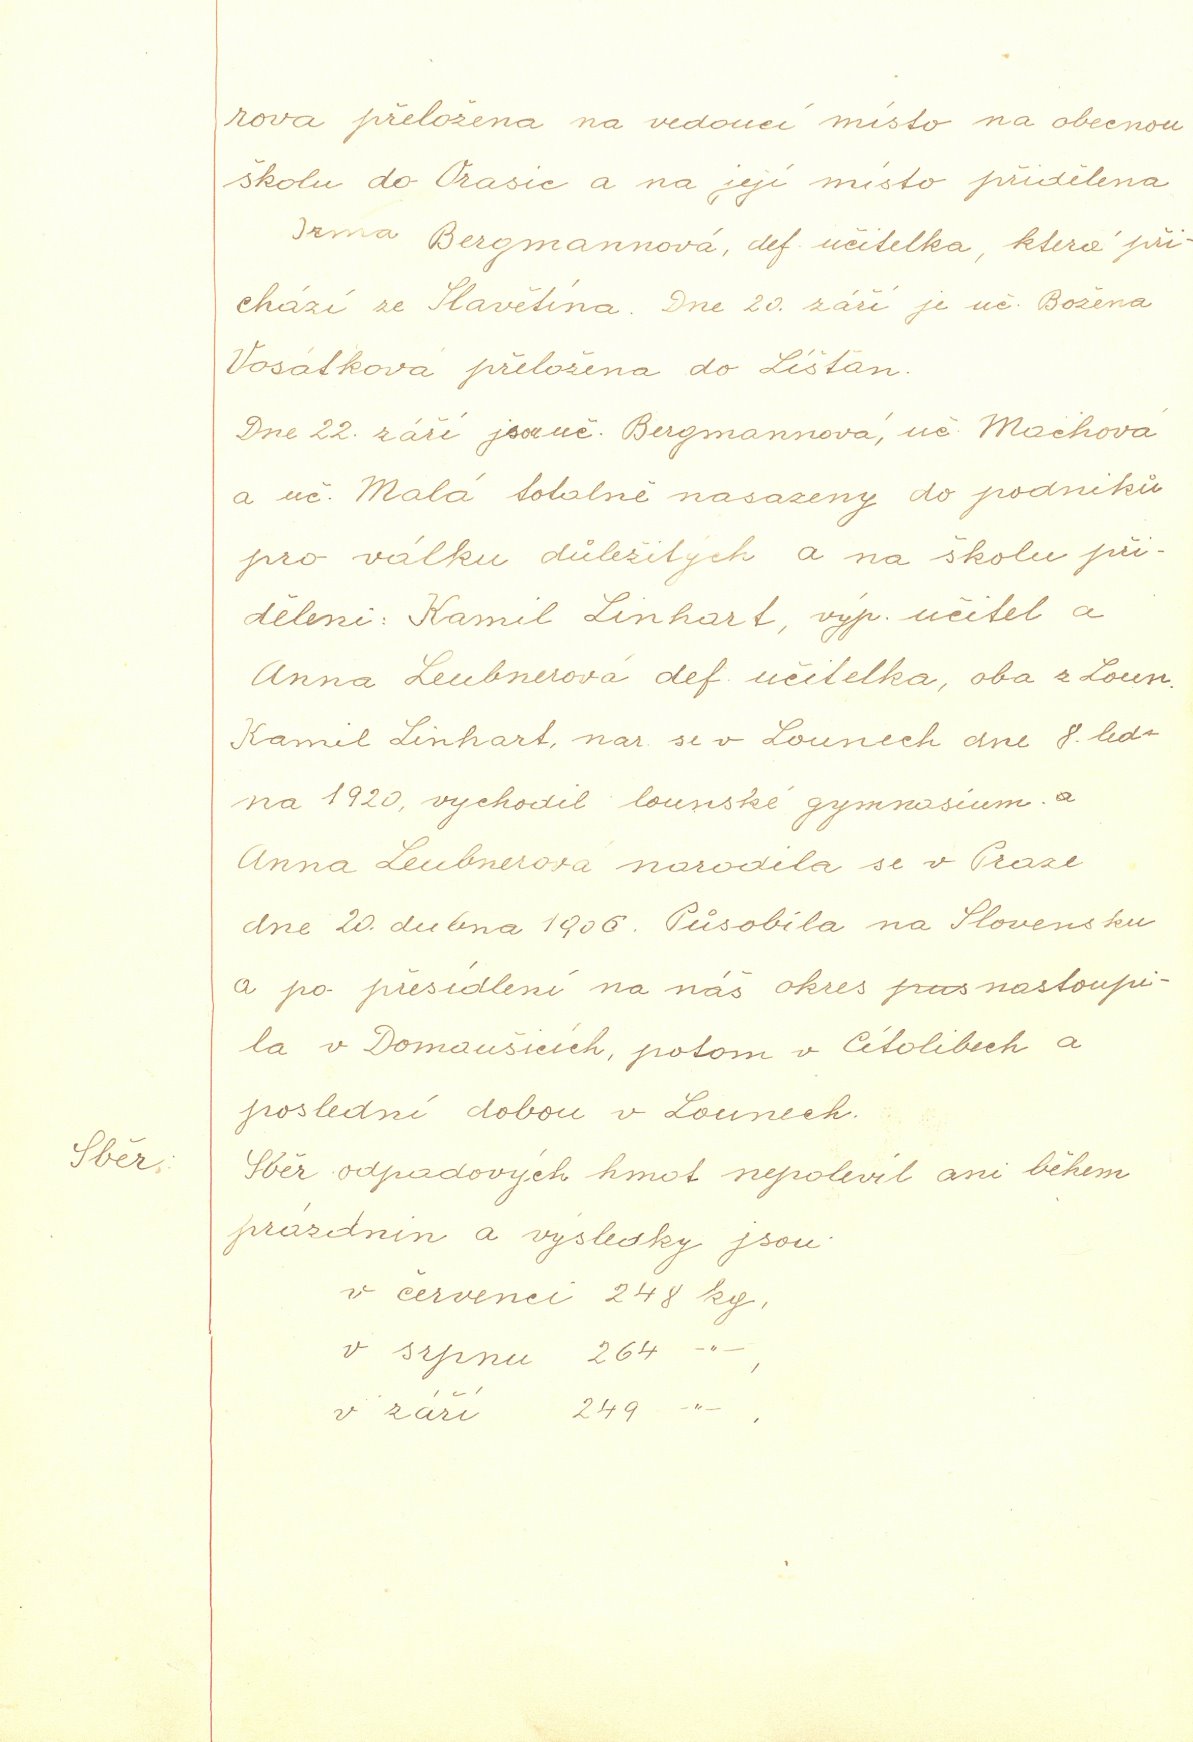 rova přeložena na vedoucí místo na obecnou
školu do Orasic a na její místo přidělena
Irma Bergmannová, def. učitelka, která při-
chází ze Slavětína. Dne 20. září je uč. Božena
Vosátková přeložena do Líšťan.
Dne 22. září jsou uč. Bergmannová, uč. Machová
a uč. Malá totalně nasazeny do podniků
pro válku důležitých a na školu při-
děleni: Kamil Linhart, výp. učitel a
Anna Leubnerová def. učitelka, oba z Loun.
Kamil Linhart, nar. se v Lounech dne 8. led-
na 1920, vychodil lounské gymnasium. a
Anna Leubnerová narodila se v Praze
dne 20. dubna 1906. Působila na Slovensku
a po přesídlení na náš okres pus nastoupi-
la v Domaušicích, potom v Cítolibech a
poslední dobou v Lounech.
Sběr: Sběr odpadových hmot nepolevil ani během
prázdnin a výsledky jsou
v červenci 248 kg,
v srpnu 264 -"-,
v září 249 -"-,